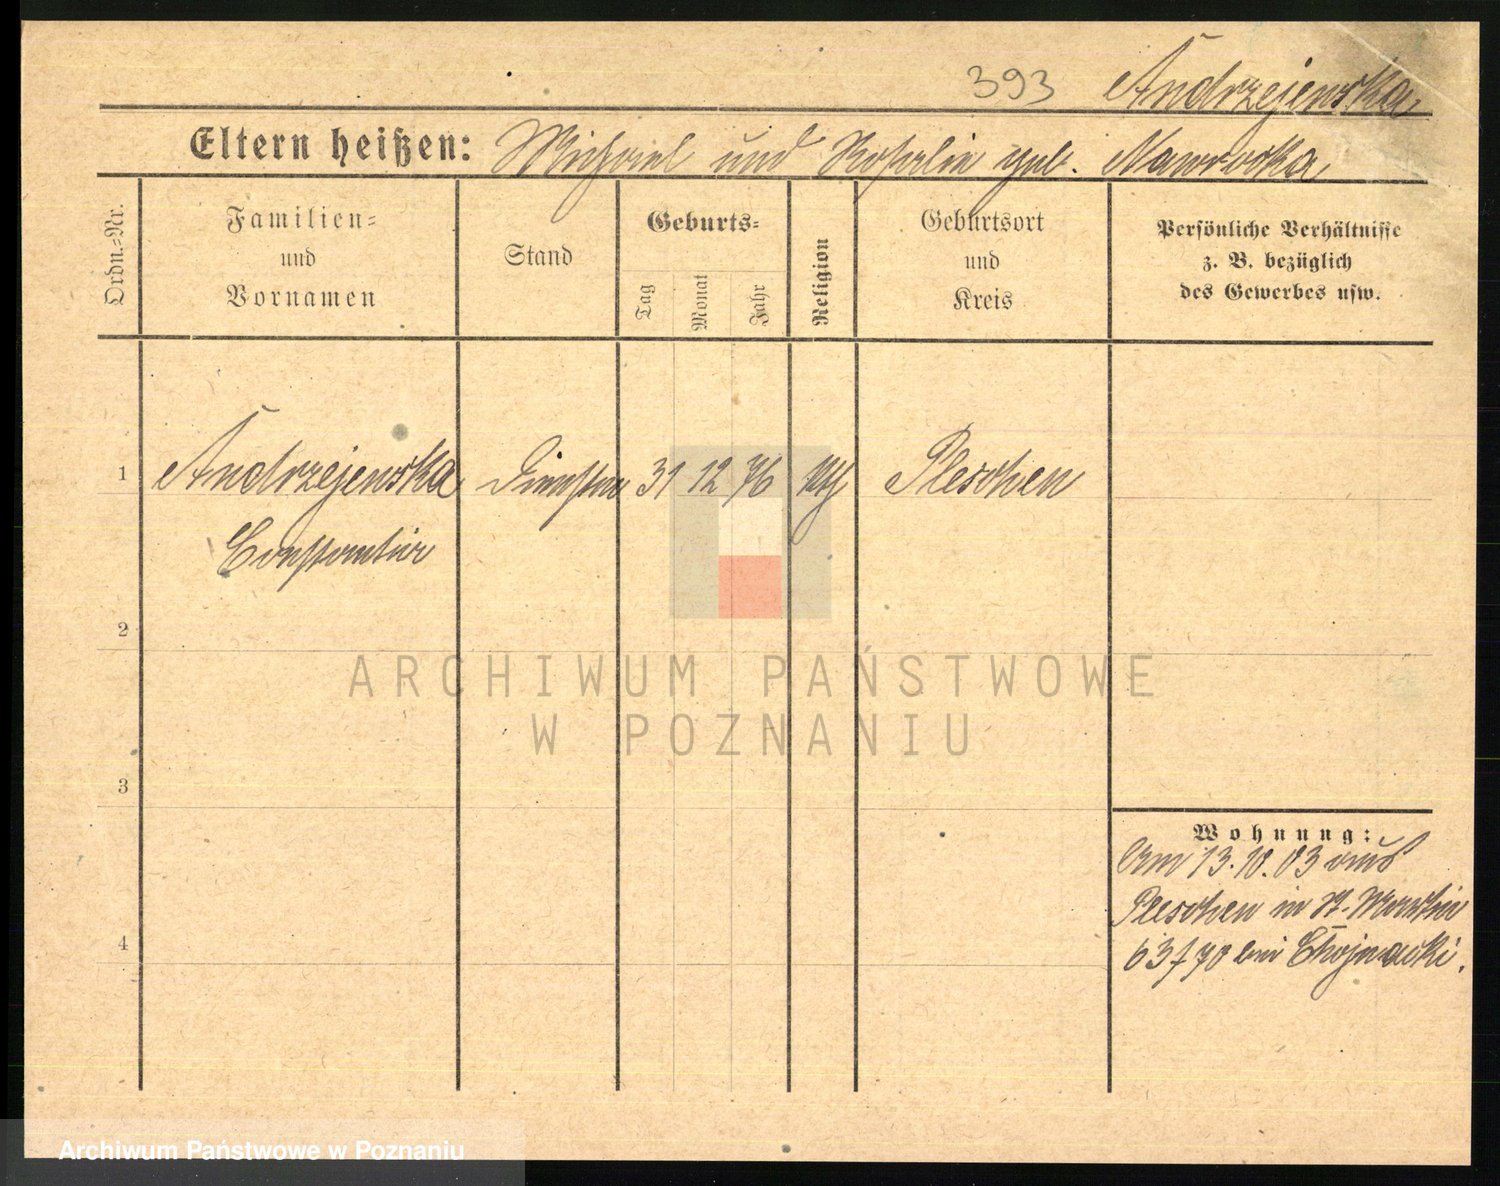 393 Andrzejewska
Eltern heißen: Michael und Rosalie geb. Nawrocka
Ordn.-Nr.
Familien-
und
Vornamen
Stand
Geburts-
Tag
Monat
Jahr
Religion
Geburtsort
und
Kreis
Persönliche Verhältnisse
z. B. bezüglich
des Gewerbes usw.
1 Andrzejewska 31 12 76 kth Pleschen
Constantia
2
3
4
Wohnung:
Am 13.10.03 aus
Pleschen in St. Martin
63 / 70 bei Chojnacki.
ARCHIWUM PAŃSTWOWE
W POZNANIU
Archiwum Państwowe w Poznaniu